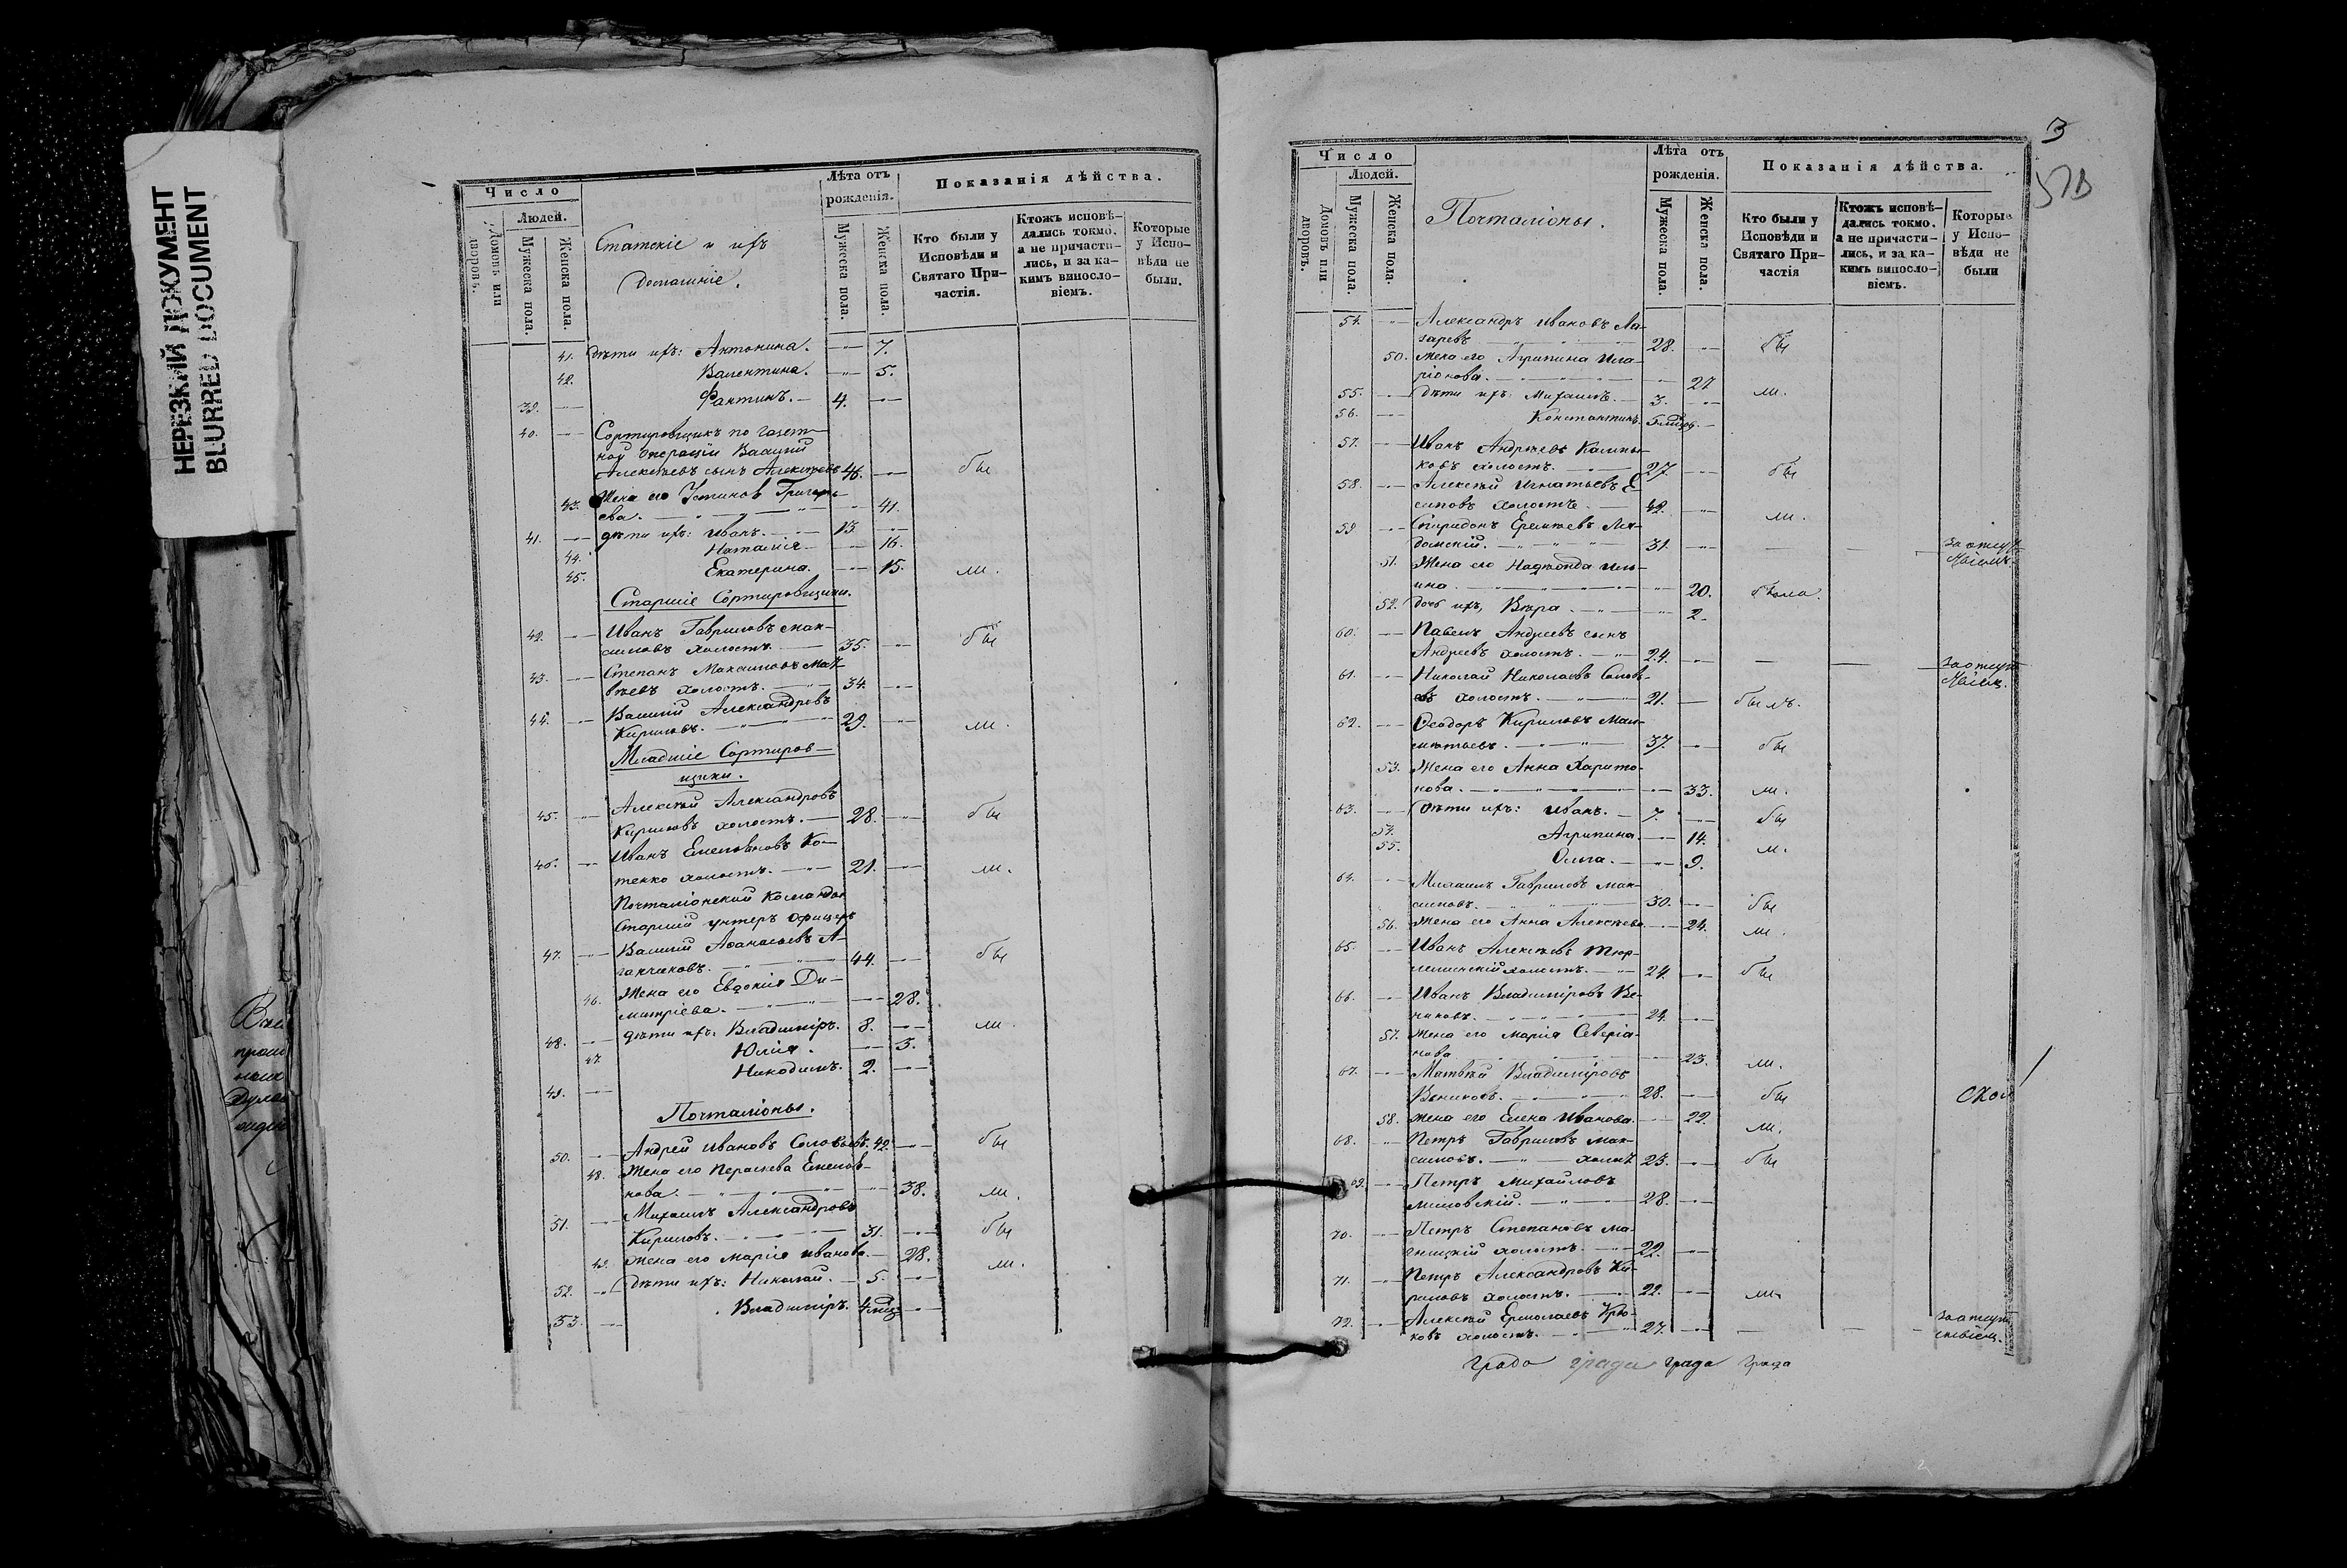 НЕРЕЗКИЙ ДОКУМЕНТ
BLURRED DOCUMENT
Число
Людей.
Домовъ или дворовъ.
Мужеска пола.
Женска пола.
Статскіе и ихъ
домашніе.
Лѣта отъ
рожденія.
Мужеска пола.
Женска пола.
Показанія дѣйства.
Кто были у
Исповѣди и
Святаго При-
частія.
Ктожъ исповѣ-
дались токмо,
а не причасти-
лись, и за ка-
кимъ винosло-
віемъ.
Которые
у Испо-
вѣди не
были.
41. дѣти ихъ: Антонина. 7.
42. Валентина. 5.
39. Фактинъ. 4.
40. Сортировщикъ по газет-
ной операціи Василій
Алексѣевъ сынъ Алексѣевъ 46. бы
43. Жена его Устинов Григорь-
ева. 41.
41. дѣти ихъ: Иванъ. 13
44. Наталія 16.
45. Екатерина. 15. ли.
Старшіе Сортировщики.
42. Иванъ Гавриловъ Мак-
симовъ холостъ. 35. бы
43. Степанъ Максимовъ Мат-
вѣевъ холостъ. 34.
44. Василій Александровъ
Кириловъ. 29. ли.
Младшіе Сортиров-
щики.
45. Алексѣй Александровъ
Кириловъ холостъ. 28. бы
46. Иванъ Емельяновъ Ко-
тенко холостъ. 21. ли.
Почталіонской Команды
Старшій унтеръ офицеръ
47. Василій Аѳанасьевъ А-
ганчиковъ. 44. бы
46. Жена его Евдокія Ди-
митріева. 28.
48. дѣти ихъ: Владиміръ. 8. ли.
47. Юлія. 3.
49. Никодимъ. 2.
Почталіоны.
50. Андрей Ивановъ Соловьевъ. 42. бы
48. Жена его Параскева Емелья-
нова. 38. ли.
51. Михаилъ Александровъ
Кириловъ. 31. бы
49. Жена его Марія Иванова. 28.
52. Дѣти ихъ: Николай. 5. ли.
53. Владиміръ. 4 мѣс.
3
Число
Людей.
Домовъ или дворовъ.
Мужеска пола.
Женска пола.
Почталіоны.
Лѣта отъ
рожденія.
Мужеска пола.
Женска пола.
Показанія дѣйства.
Кто были у
Исповѣди и
Святаго При-
частія
Ктожъ исповѣ-
дались токмо,
а не причасти-
лись, и за ка-
кимъ винosло-
віемъ.
Которые
у Испо-
вѣди не
были
54. Александръ Ивановъ Ла-
заревъ 28. бы
50. Жена его Агрипина Ила-
ріонова. 27
55. Дѣти ихъ: Михаилъ. 3. ли.
56. Константинъ.
57. Иванъ Андреевъ Калмы-
ковъ холостъ. 27. бы
58. Алексѣй Игнатьевъ Е-
симовъ холостъ. 42. ли.
59 Спиридонъ Еремѣевъ
31. за отсут-
51. Жена его Надежда Иль- ствіемъ.
ина 20. была.
52. дочь ихъ, Вѣра. 2.
60. Павелъ Андреевъ сынъ
Андреевъ холостъ. 24. за отсут-
61. Николай Николаевъ Соловь- ствіем.
евъ холостъ. 21. былъ.
62. Ѳеодоръ Кириловъ
37. бы
53. Жена его Анна Харито-
нова. 33. ли.
63. Дѣти ихъ: Иванъ. 7. бы
54. Агрипина. 14.
55. Ольга. 9. ли.
64. Михаилъ Гавриловъ Мак-
симовъ. 30. бы
56. Жена его Анна Алексѣева 24. ли.
65. Иванъ Алексѣевъ
холостъ. 24. бы
66. Иванъ Владиміровъ Ве-
никовъ. 24.
57. Жена его Марія Северіа-
нова 23. ли.
67. Матвѣй Владиміровъ
Вениковъ. 28. бы
58. Жена его Елена Иванова. 22. ли.
68. Петръ Гавриловъ Мак-
симовъ. холост 23. бы
69. Петръ Михайловъ
28.
70. Петръ Степановъ
холостъ. 22.
71. Петръ Александровъ Ки-
риловъ холостъ. 22. ли.
72. Алексѣй Ермолаевъ Крю- за отсут-
ковъ холостъ. 27. ствіем.
града града града града